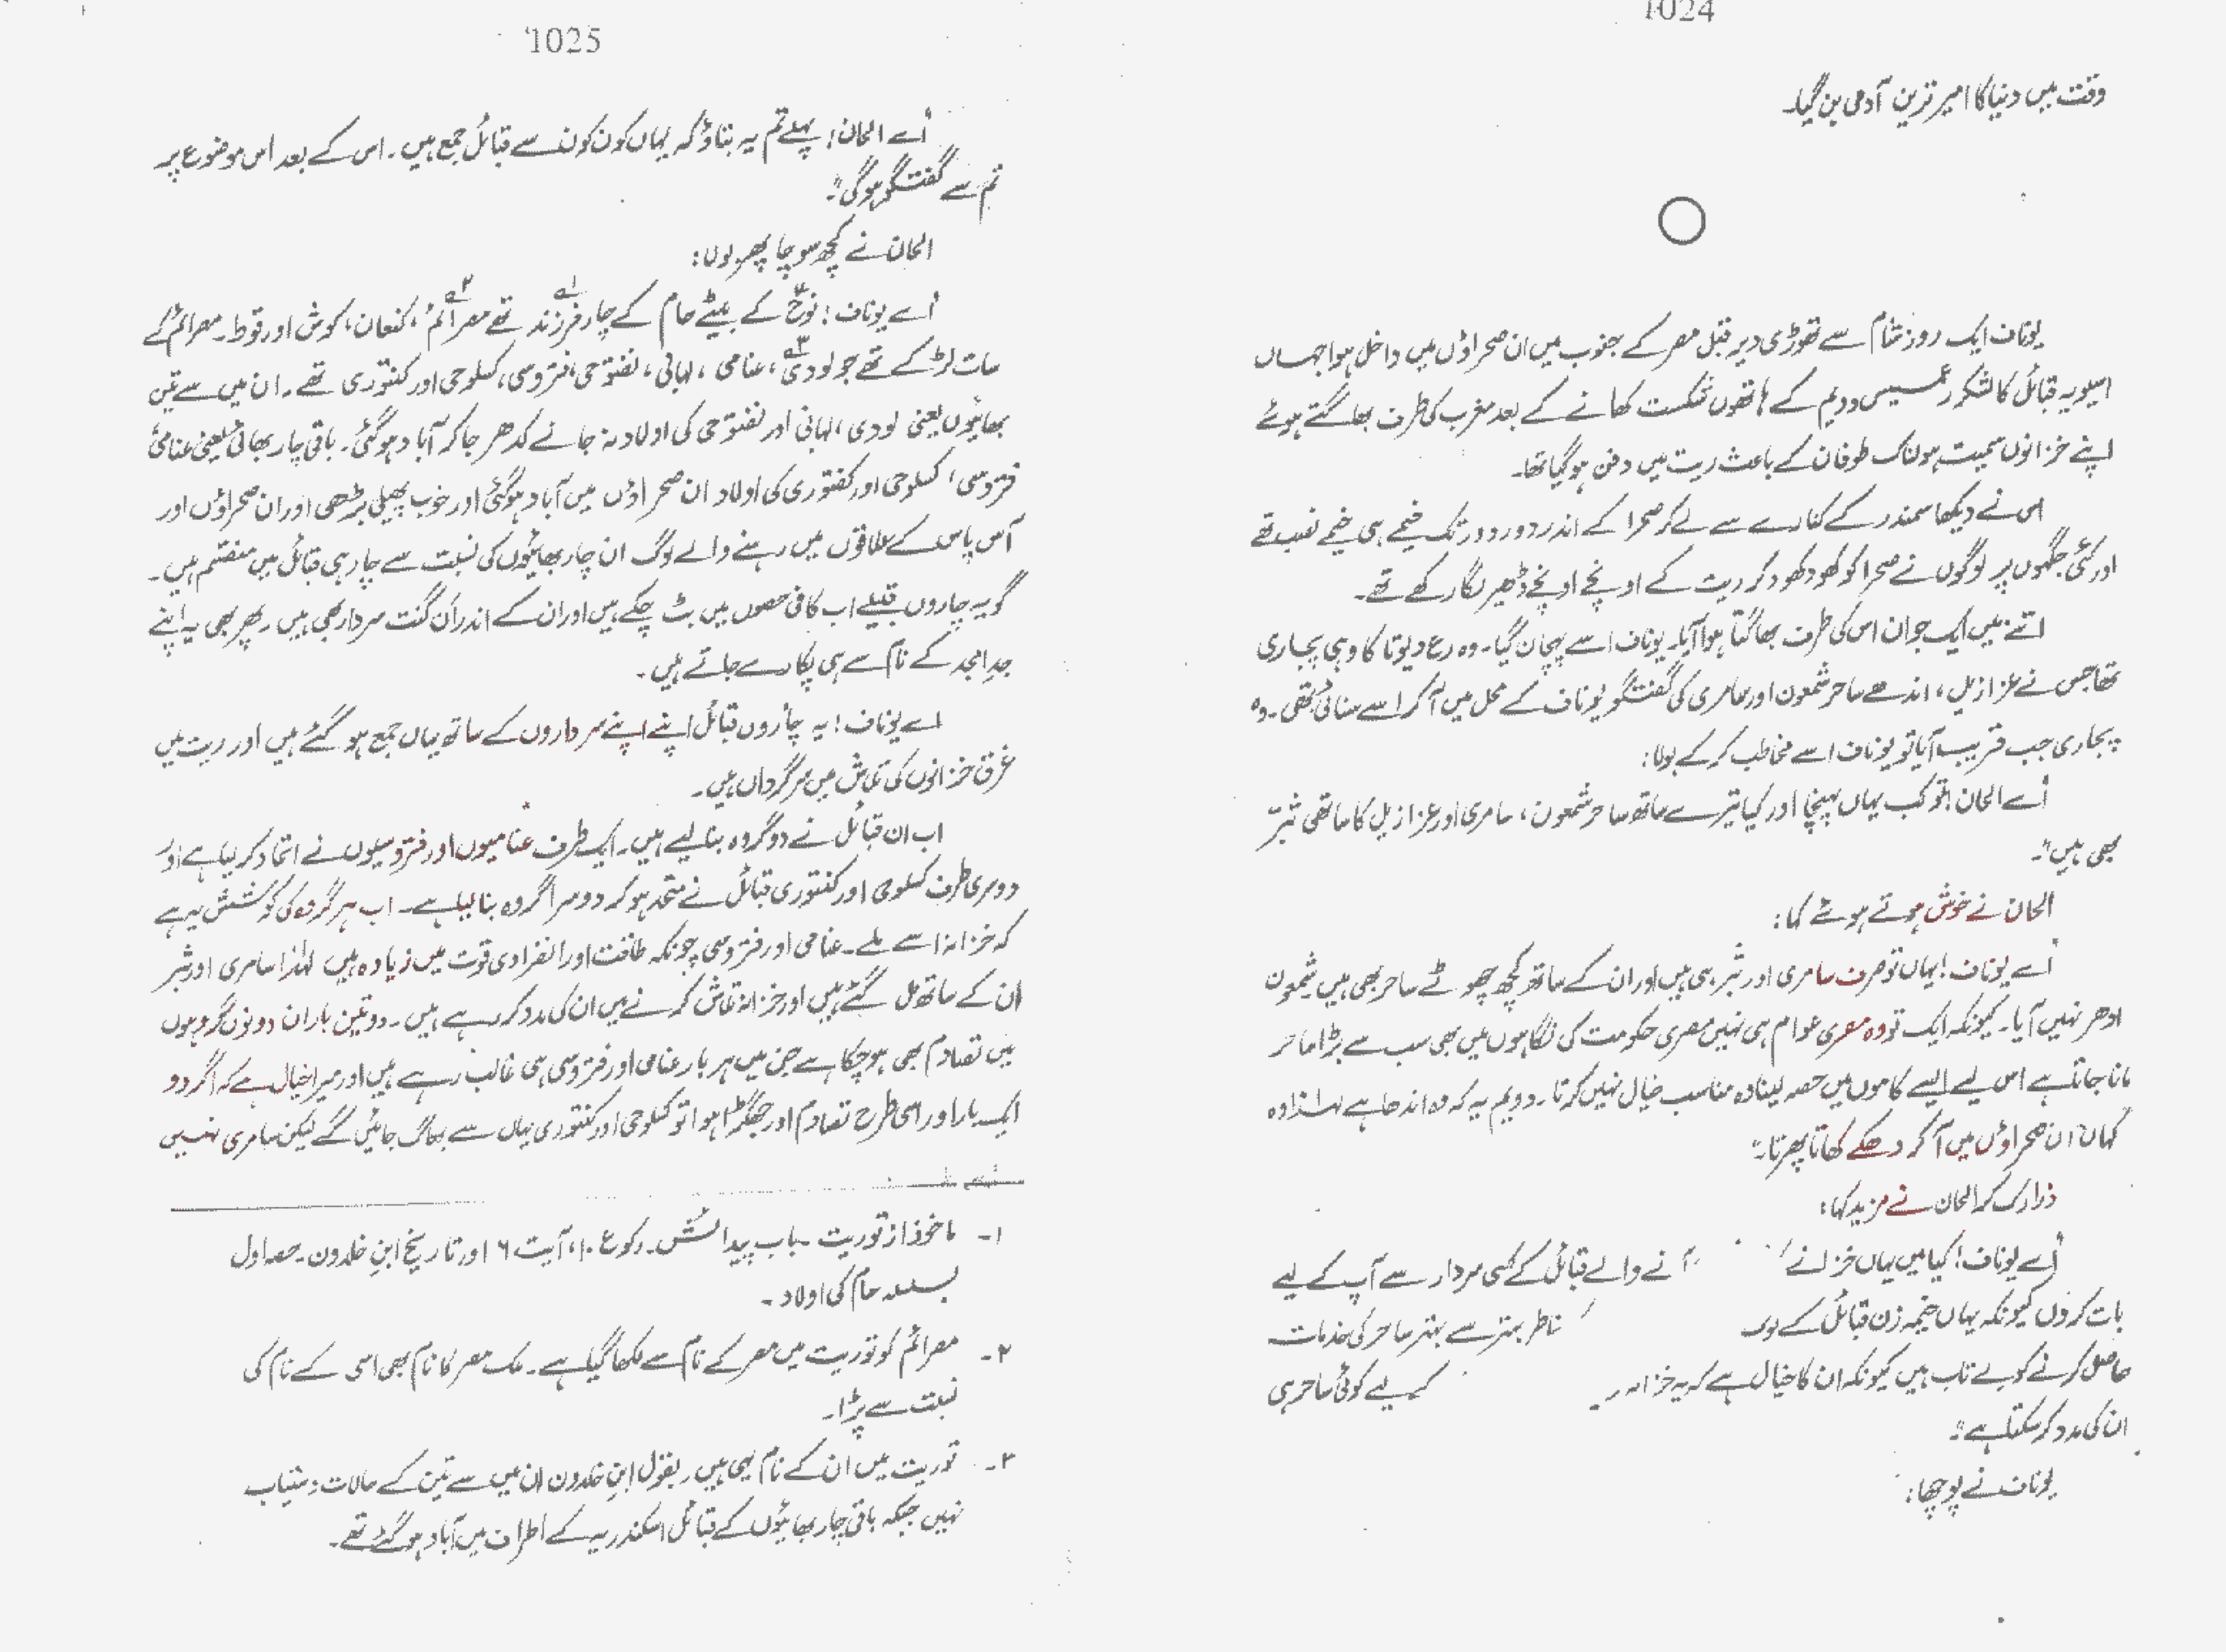 1024
وقت میں دنیا کا امیر ترین آدمی بن گیا۔
یوناف ایک روز شام سے تھوڑی دیر قبل مصر کے جنوب میں ان صحراؤں میں داخل ہوا جہاں
اسیلویہ قبائل کا لشکر رعمسیس دوئم کے ہاتھوں شکست کھانے کے بعد مغرب کی طرف بھاگتے ہوئے
اپنے خزانوں سمیت ہولناک طوفان کے باعث ریت میں دفن ہو گیا تھا۔
اس نے دیکھا سمندر کے کنارے سے لے کر صحرا کے اندر دور دور تک خیمے ہی خیمے نصب تھے
اور کئی جگہوں پر لوگوں نے صحرا کو کھود کھود کر ریت کے اونچے اونچے ڈھیر لگا رکھے تھے۔
اتنے میں ایک جوان اس کی طرف بھاگتا ہوا آیا۔ یوناف اسے پہچان گیا۔ وہ رع دیوتا کا وہی پجاری
تھا جس نے عزازیل، اندھے ساحر شمعون اور سامری کی گفتگو یوناف کے محل میں آ کر اسے سنائی تھی۔ وہ
پجاری جب قریب آیا تو یوناف اسے مخاطب کر کے بولا:
اُے الحان! تو کب یہاں پہنچا اور کیا تیرے ساتھ ساحر شمعون، سامری اور عزازیل کا ساتھی ثبر
بھی ہیں"۔
الحان نے خوش ہوتے ہوئے کہا:
اُے یوناف! یہاں تو صرف سامری اور ثبر ہی ہیں اور ان کے ساتھ کچھ چھوٹے ساحر بھی ہیں شمعون
ادھر نہیں آیا۔ کیونکہ ایک تو وہ مصری عوام ہی نہیں مصری حکومت کی نگاہوں میں بھی سب سے بڑا ساحر
مانا جاتا ہے اس لیے ایسے کاموں میں حصہ لینا وہ مناسب خیال نہیں کرتا۔ دوئم یہ کہ وہ اندھا ہے لہٰذا وہ
کہاں ان صحراؤں میں آ کر دھکے کھاتا پھرتا"۔
ذرا رک کر الحان نے مزید کہا:
اُے یوناف! کیا میں یہاں خزانے نے والے قبائل کے کسی سردار سے آپ کے لیے
بات کروں کیونکہ یہاں خیمہ زن قبائل کے خاطر بہتر سے بہتر ساحر کی خدمات
حاصل کرنے کو بے تاب ہیں کیونکہ ان کا خیال ہے کہ یہ خزانہ کے لیے کوئی ساحر ہی
ان کی مدد کر سکتا ہے"۔
یوناف نے پوچھا:
1025
اُے الحان! پہلے تم یہ بتاؤ کہ یہاں کون کون سے قبائل جمع ہیں۔ اس کے بعد اس موضوع پر
تم سے گفتگو ہو گی"۔
الحان نے کچھ سوچا پھر بولا:
اُے یوناف! نوحؑ کے بیٹے حام کے چار فرزند۱؎ تھے مصرائم۲؎، کنعان، کوش اور قوط۔ مصرائم کے
سات لڑکے تھے جو لودی۳؎، عنامی، لہابی، نفتوحی، فتروسی، کسلوحی اور کفتوری تھے۔ ان میں سے تین
بھائیوں یعنی لودی، لہابی اور نفتوحی کی اولاد نہ جانے کدھر جا کر آباد ہو گئی۔ باقی چار بھائی یعنی عنامی
فتروسی، کسلوحی اور کفتوری کی اولاد ان صحراؤں میں آباد ہو گئی اور خوب پھیلی بڑھی اور ان صحراؤں اور
آس پاس کے علاقوں میں رہنے والے لوگ ان چار بھائیوں کی نسبت سے چار ہی قبائل میں منقسم ہیں۔
گو یہ چاروں قبیلے اب کافی حصوں میں بٹ چکے ہیں اور ان کے اندر اَن گنت سردار بھی ہیں۔ پھر بھی یہ اپنے
جدِ امجد کے نام سے ہی پکارے جاتے ہیں۔
اے یوناف! یہ چاروں قبائل اپنے اپنے سرداروں کے ساتھ یہاں جمع ہو گئے ہیں اور ریت میں
غرق خزانوں کی تلاش میں سرگرداں ہیں۔
اب ان قبائل نے دو گروہ بنا لیے ہیں۔ ایک طرف عنامیوں اور فتروسیوں نے اتحاد کر لیا ہے اور
دوسری طرف کسلوحی اور کفتوری قبائل نے متحد ہو کر دوسرا گروہ بنا لیا ہے۔ اب ہر گروہ کی کوشش یہ ہے
کہ خزانہ اسے ملے۔ عنامی اور فتروسی چونکہ طاقت اور انفرادی قوت میں زیادہ ہیں لہٰذا سامری اور ثبر
ان کے ساتھ مل گئے ہیں اور خزانہ تلاش کرنے میں ان کی مدد کر رہے ہیں۔ دو تین بار ان دونوں گروہوں
میں تصادم بھی ہو چکا ہے جن میں ہر بار عنامی اور فتروسی ہی غالب رہے ہیں اور میرا خیال ہے کہ اگر دو
ایک بار اور اسی طرح تصادم اور جھگڑا ہوا تو کسلوحی اور کفتوری یہاں سے بھاگ جائیں گے لیکن سامری نہیں
۱۔ ماخوذ از توریت ۔ باب پیدائش۔ رکوع ۱۰، آیت ۶ اور تاریخ ابنِ خلدون۔ حصہ اول
بسلسلہ حام کی اولاد ۔
۲۔ مصرائم کو توریت میں مصر کے نام سے لکھا گیا ہے۔ ملک مصر کا نام بھی اسی کے نام کی
نسبت سے پڑا۔
۳۔ توریت میں ان کے نام یہی ہیں۔ بقول ابنِ خلدون ان میں سے تین کے حالات دستیاب
نہیں جبکہ باقی چار بھائیوں کے قبائل اسکندریہ کے اطراف میں آباد ہو گئے تھے۔